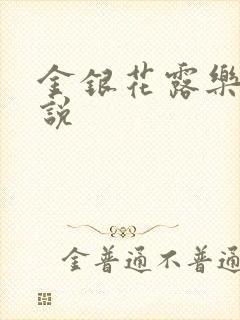 金銀花露樂
說
金普通不普通